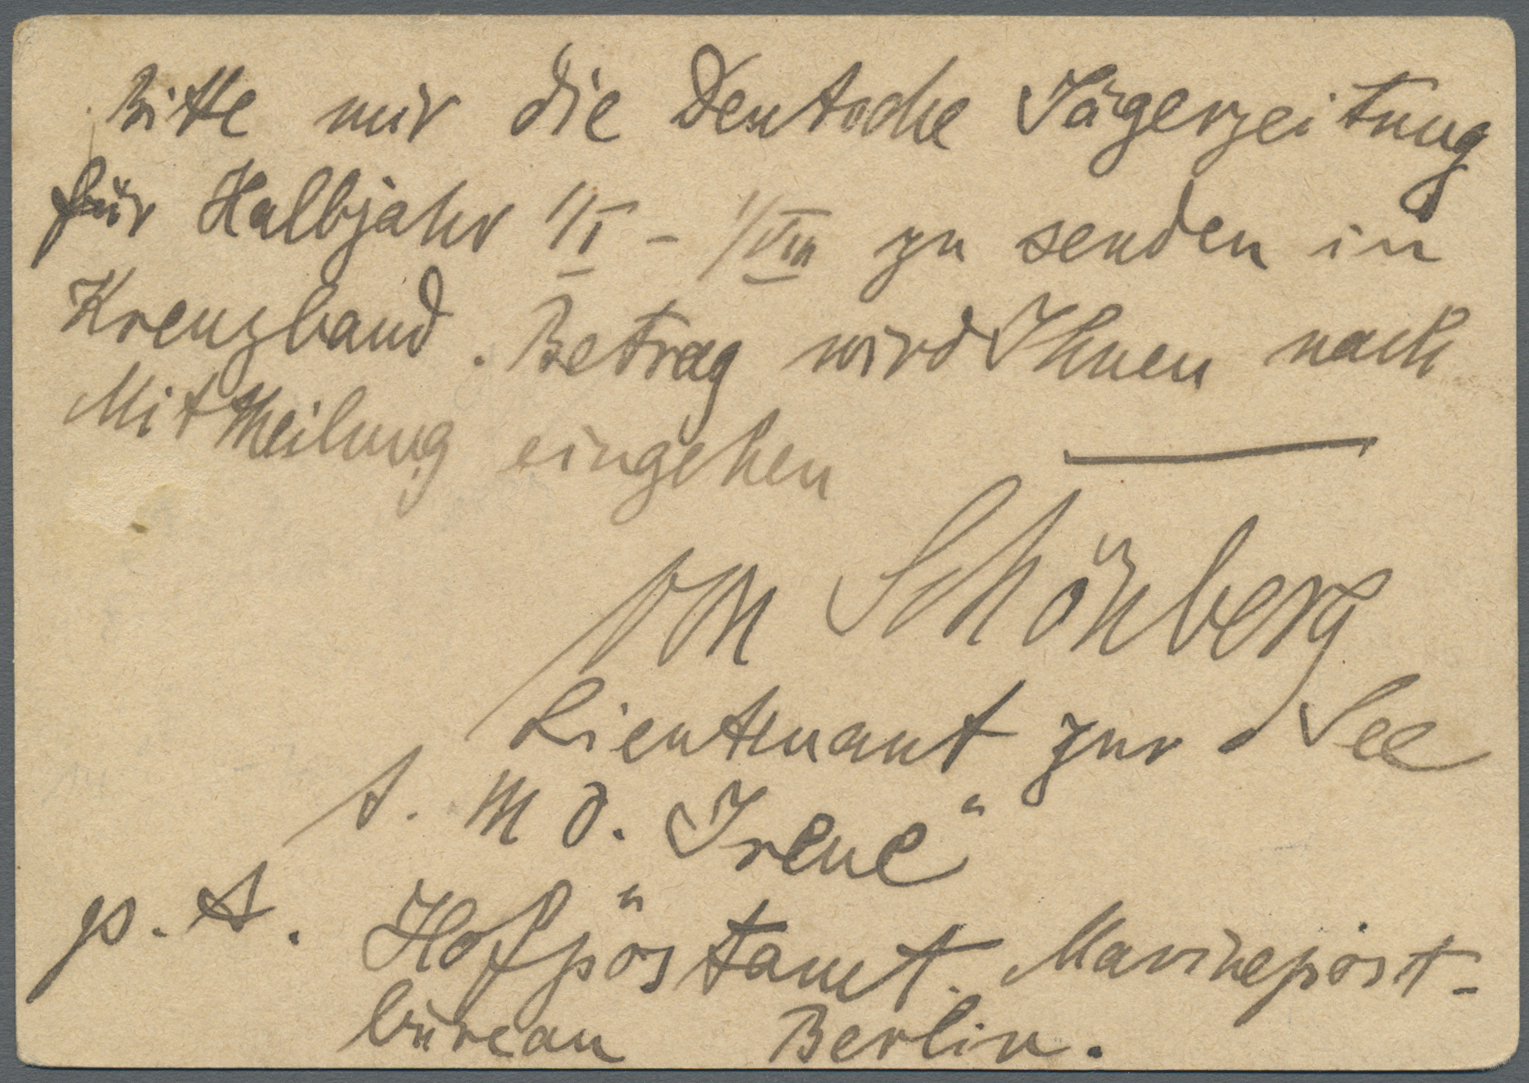 Bitte mir die Deutsche Jägerzeitung
für Halbjahr 1/I – 1/VIII zu senden in
Kreuzband. Betrag wird Ihnen nach
Mittheilung eingehen
von Schönberg
Lieutenant zur See
S. M. S. "Irene"
p. A. Hofpostamt. Marinepost-
büreau Berlin.